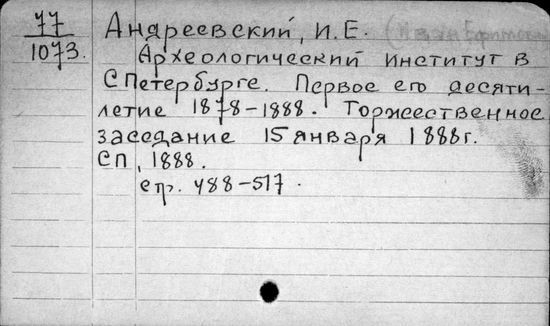 77
1073.
Андреевский, И.Е. (Иван Ефимович
Археологический институт в
СПетербурге. Первое его десяти-
летие 1878-1888. Торжественное
заседание 15 января 1888г.
СП, 1888.
стр. 488-517.